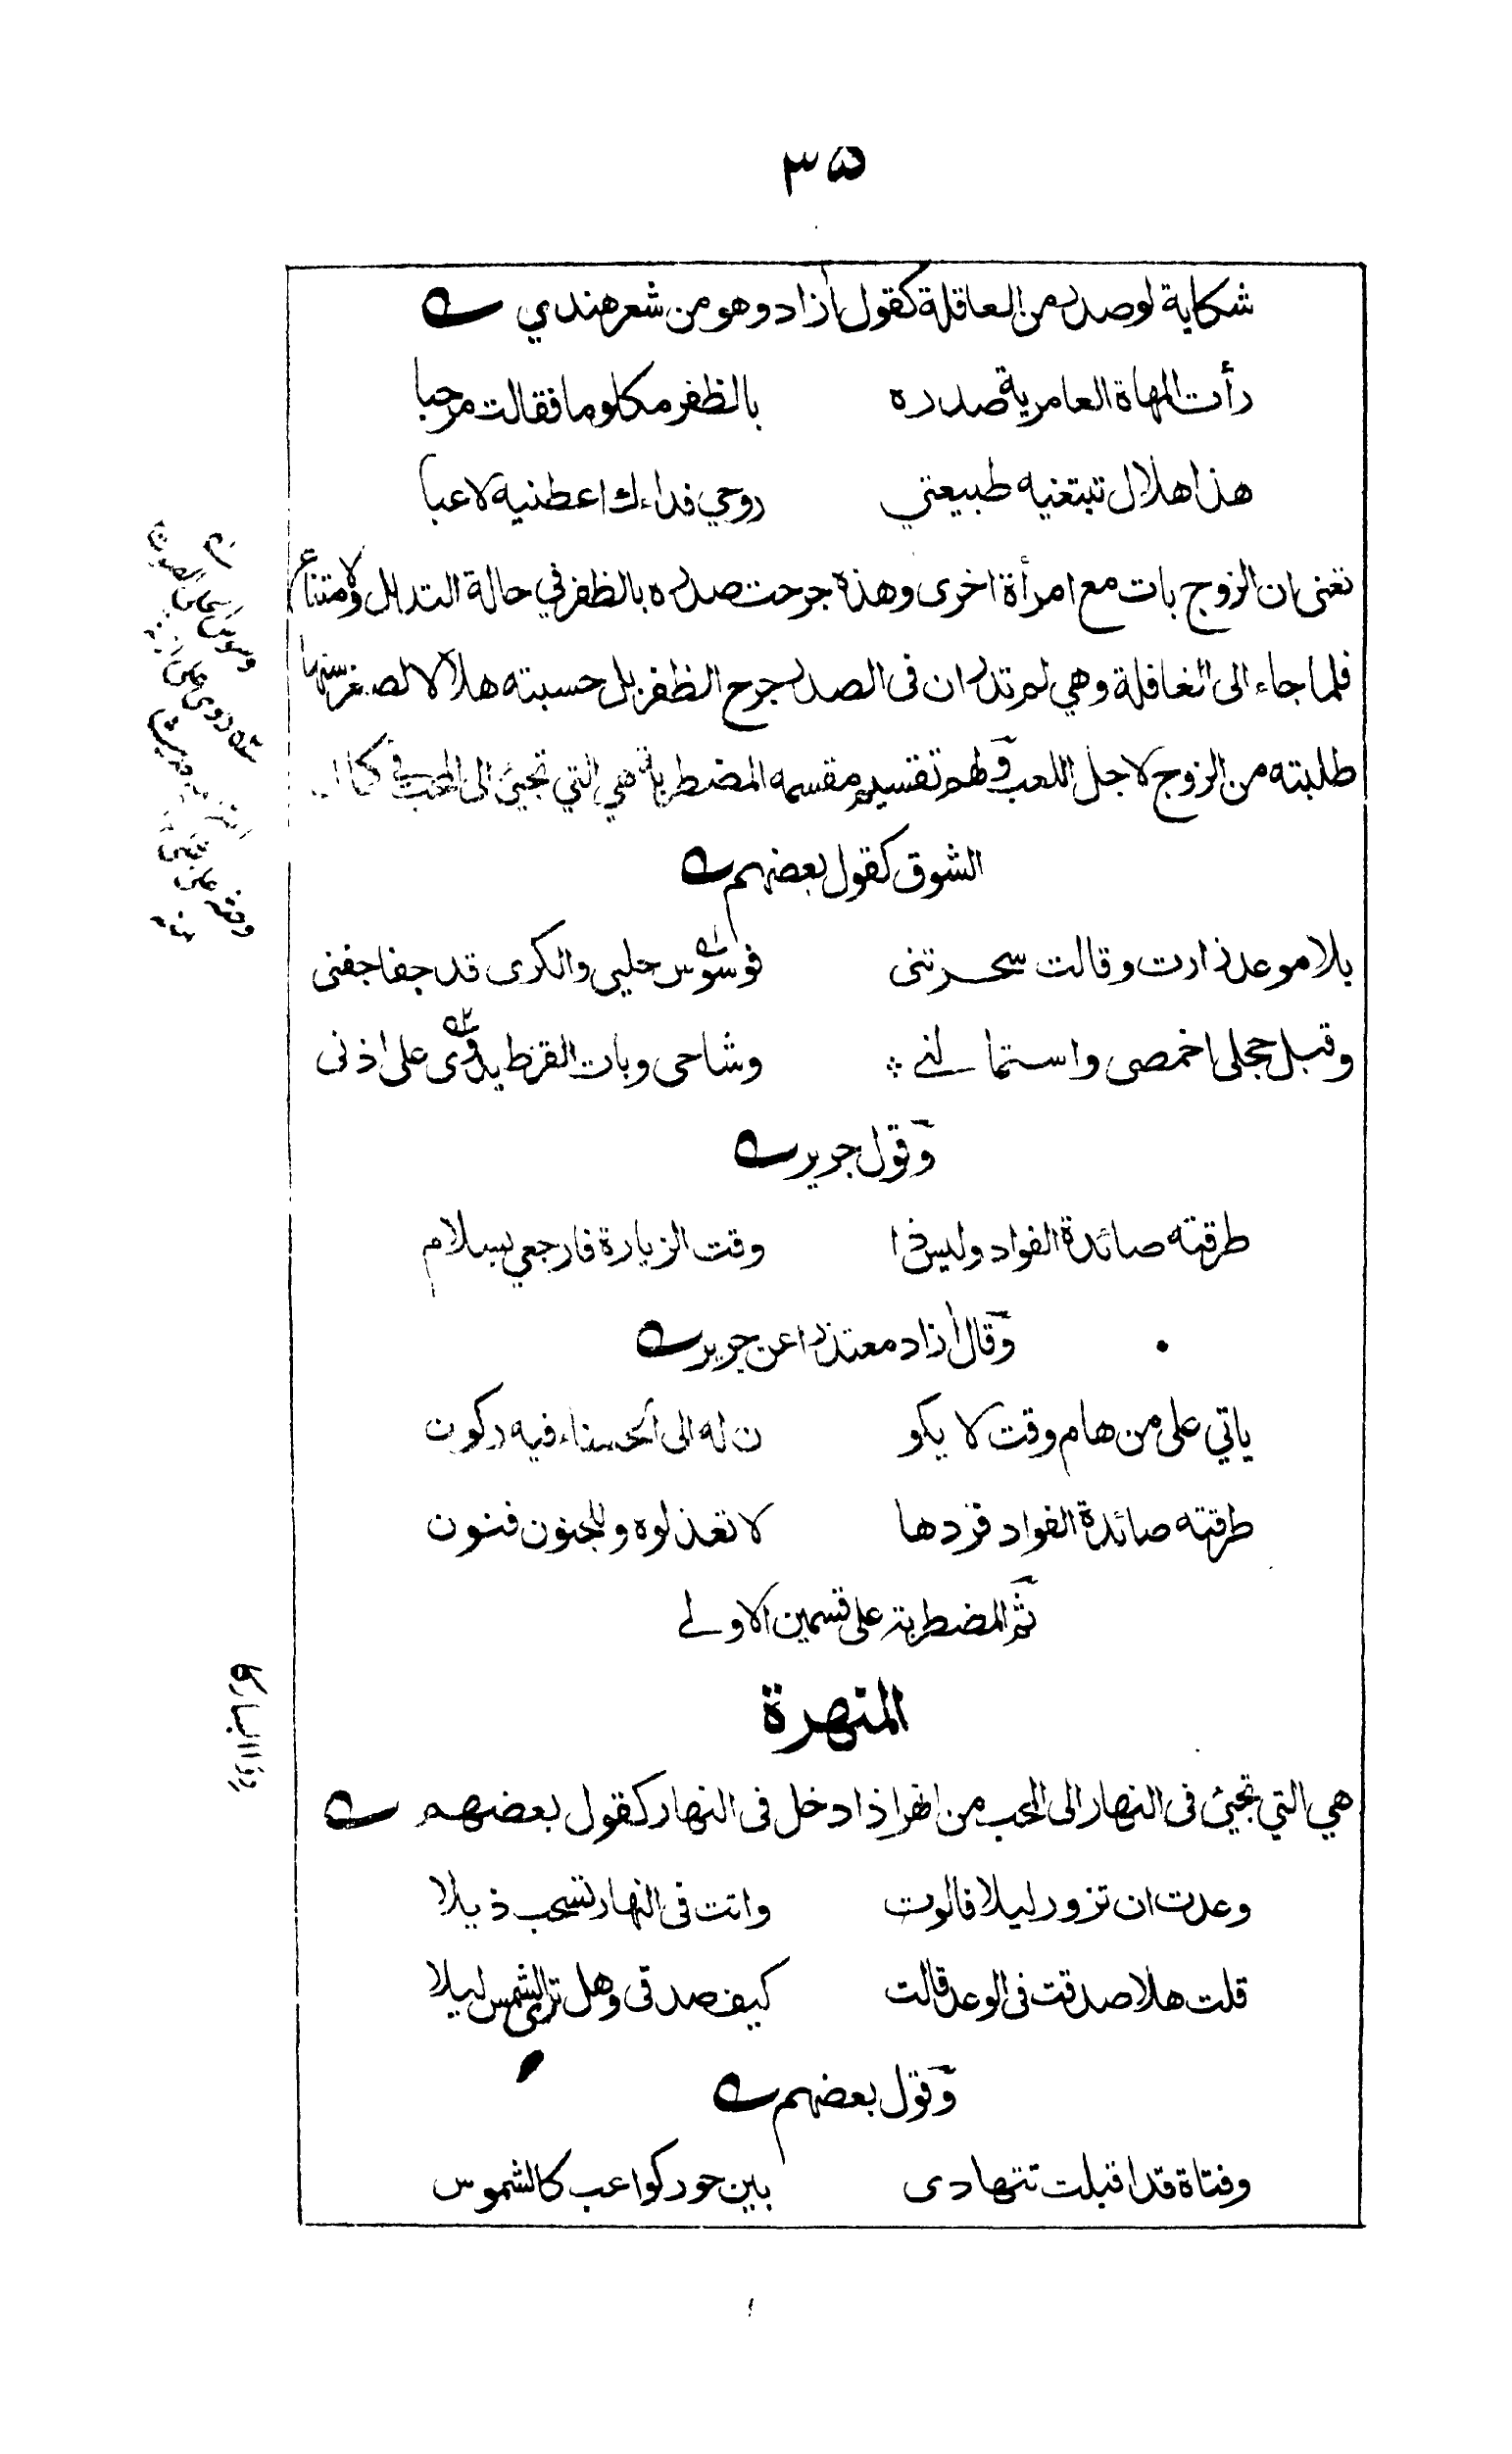 ٣٥
شكاية لوصدر من العاقلة كقول آزاد وهو من شعر هندي
رأت المهاة العامرية صدره بالظفر مكلوما فقالت مرحبا
هذا هلال تبتغيه طبيعتي روحي فداءك اعطنيه لاعبا
تعنى ان الزوج بات مع امرأة اخرى وهذه جرحت صدره بالظفر في حالة التدلل والامتناع
فلما جاء الى الغافلة وهي لم تدر ان فى الصدر جرح الظفر بل حسبته هلالا لصغر سنها
طلبته من الزوج لاجل اللعب ولهم تقسيم مقسمه المضطربة هي التي تجيئ الى المحب في كمال
الشوق كقول بعضهم
بلا موعد زارت وقالت سحرتنى فوسوس حليي والكرى قد جفا جفنى
وقبل حجلى اخمصى واستمالنے وشاحى وبات القرط يذوى على اذنى
وقول جرير
طرقته صائدة الفواد وليس ذا وقت الزيارة فارجعي بسلام
وقال آزاد معتذرا عن جرير
ياتي على من هام وقت لا يكو ن له الى الحسناء فيه ركون
طرقته صائدة الفواد فردها لا تعذلوه وللجنون فنون
ثم المضطربة على قسمين الاولے
المنهرة
هي التي تجيئ فى النهار الى المحب من انهر اذا دخل فى النهار كقول بعضهم
وعدت ان تزور ليلا فالوت واتت فى النهار تسحب ذيلا
قلت هلا صدقت فى الوعد قالت كيف صدقى وهل ترى الشمس ليلا
وقول بعضهم
وفتاة قد اقبلت تتهادى بين حور كواعب كالشموس